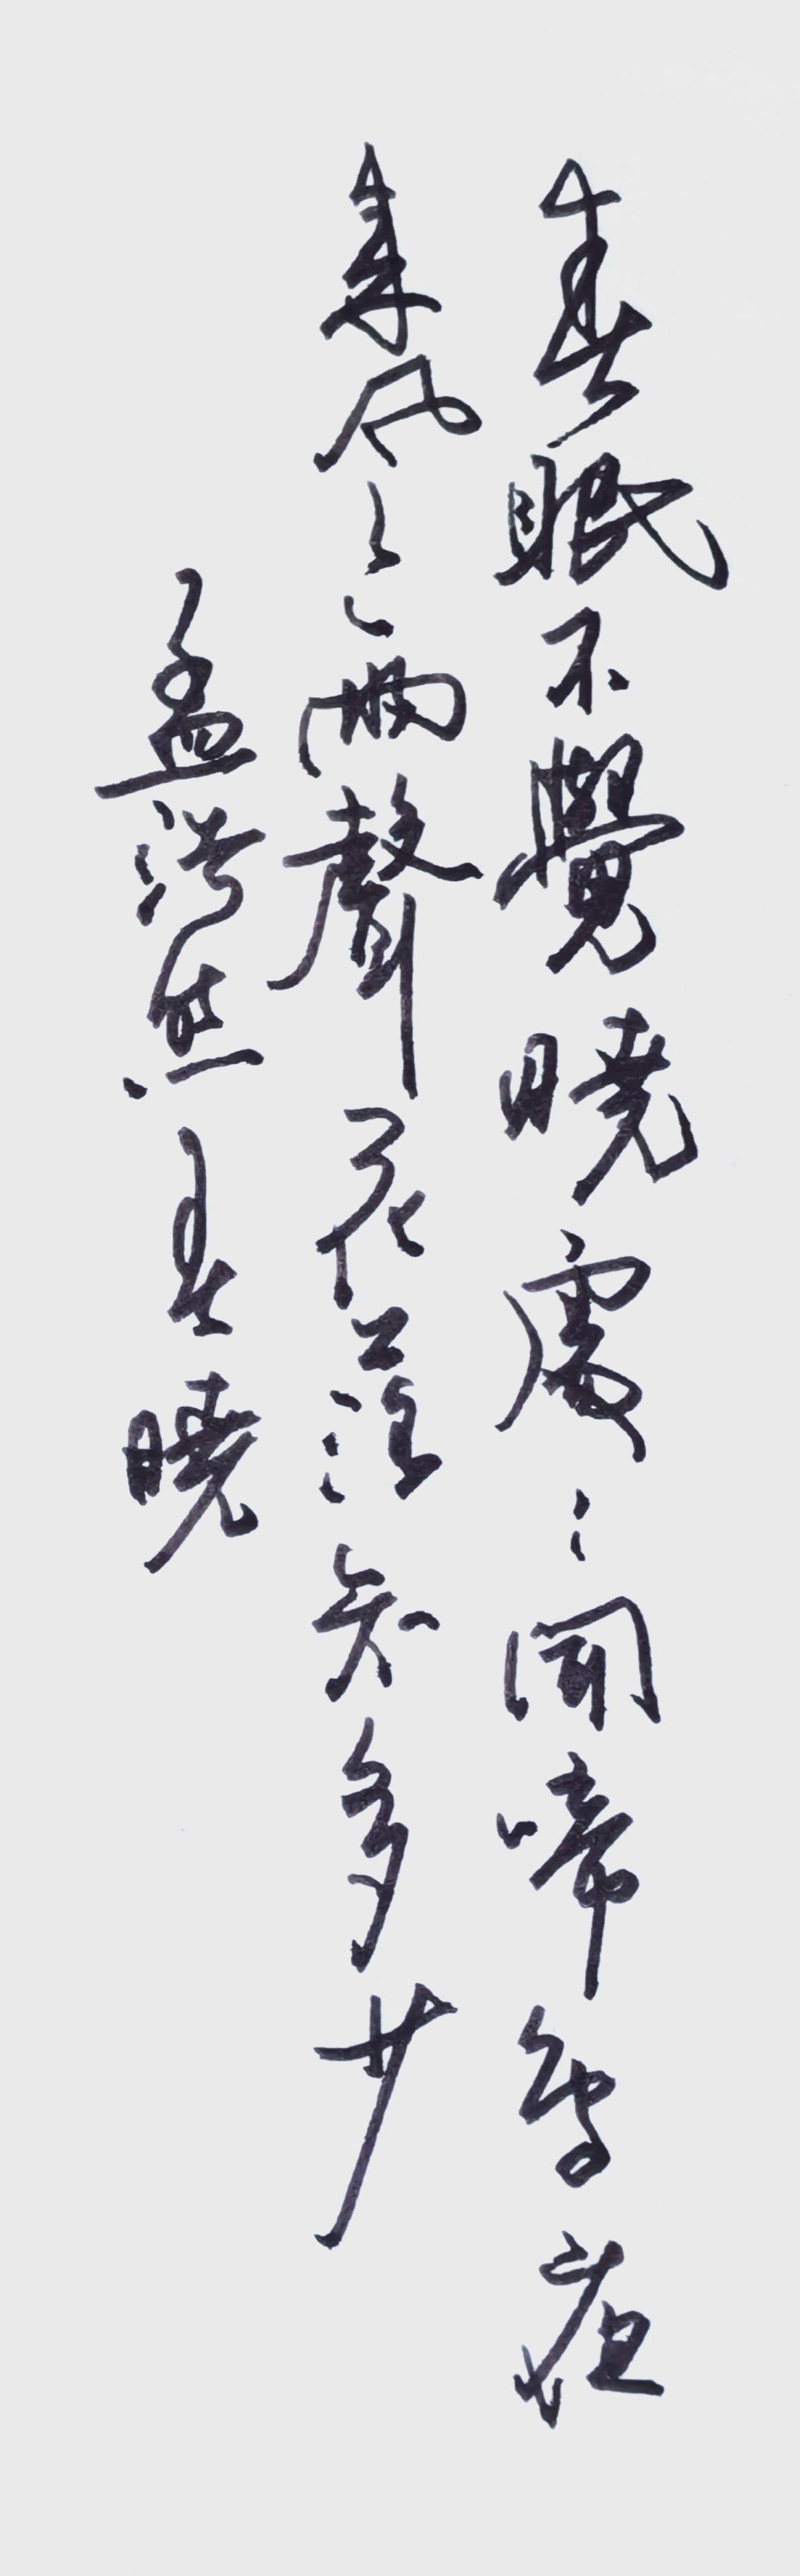 春眠不覺曉處〻聞啼鳥夜
来风雨聲花落知多少
孟浩然春曉